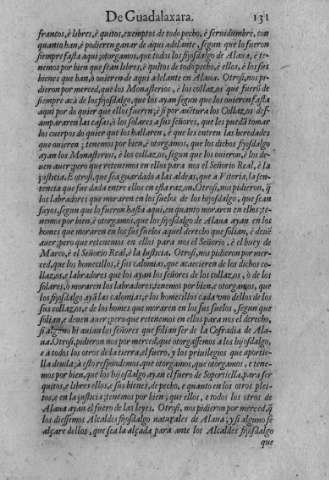 De Guadalaxara. 131
francos, è lebres, è quitos, exemptos de todo pecho, è seruidumbre, con
quanto han, è pudieren ganar de aqui adelante, segun que lo fueron
siempre fasta aqui; otorgamos, que todos los fijosdalgo de Alaua, è te-
nemos por bien que sean libres, è quitos de todo pecho, è ellos, è los sus
bienes que han, ò ouieren de aqui adelante en Alaua. Otrosi, nos pi-
dieron por merced, que los Monasterios, è los collazos que fueró de
siempre acà de los fijosdalgo, que los ayan segun que los ouieron fasta
aqui por do quier que ellos fueren; è si por auētura los Collazos desf-
ampararen las casas, è los solares a sus señores, que les puedā tomar
los cuerpos do quier que los hallaren, è que les entren las heredades
que ouieren; tenemos por bien, è otorgamos, que los dichos fijosdalgo
ayan los Monasterios, è los collazos, segun que los ouieron, è los de-
uen auer; pero que retenemos en ellos para nos el Señorio Real, è la
justicia. E otrosi, que sea guardado a las aldeas, que a Vitoria, la sen-
tencia que fue dada entre ellos en esta razon. Otrosi, nos pidieron, q̄
los labradores que moraren en los suelos de los fijosdalgo, que sean
suyos, segun que lo fueron hasta aqui, en quanto moraren en ellos; te-
nemos por bien, è otorgamos, que los fijosdalgo de Alaua ayan en los
homes que moraren en los sus suelos aquel derecho que solian, è deuē
auer; pero que retenemos en ellos para nos el Señorio, è el buey de
Março, è el Señorio Real, è la Iusticia. Otrosi, nos pidieron por mer-
ced, que los homecillos, è las calonias, que acaecieren de los dichos co-
llazos, è labradores que los ayan los señores de los collazos, ò de los
solares, ò moraren los labradores; tenemos por bien, è otorgamos, que
los fijosdalgo ayā las calonias, è los homecillos cada vno dellos de los
sus collazos, è de los homes que moraren en los sus suelos, segun que
solian, è deuen auer; pero que retenemos en ellos para nos el derecho,
si alguno hi auian los señores que solian ser de la Cofradia de Ala-
ua. Otrosi, pidieron nos por merced, que otorgassemos a los fijosdalgo,
e a todos los otros de la tierra, el fuero, y los priuilegios que aportie-
lla deuda; à esto respondemos, que otorgamos, que otorgamos, e tene-
mos por bien, que los fijosdalgo ayan el fuero de Soportilla, para ser
quitos, e libres ellos, e sus bienes, de pecho, e quanto en los otros plei-
tos, e en la justicia; tenemos por bien, que ellos, e todos los otros de
Alaua ayan el fuero de las leyes. Otrosi, nos pidieron por merced, q̄
les diessemos Alcaldes fijosdalgo naturales de Alaua; y si alguno se
alçare dellos, que sea la alçada para ante los Alcaldes fijosdalgo
que